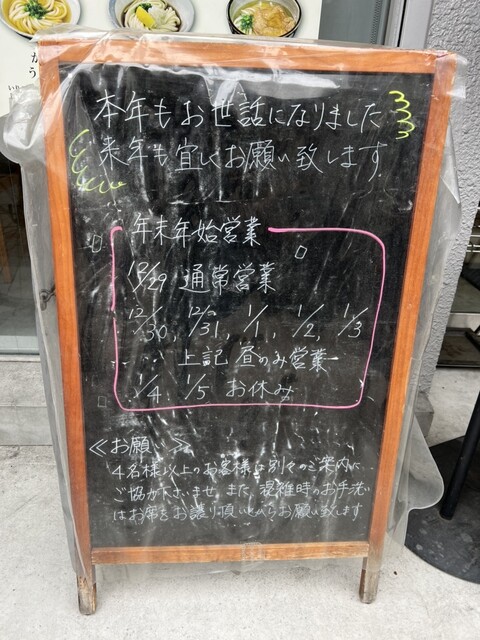 本年もお世話になりました
来年も宜しくお願い致します
年末年始営業
12/29 通常営業
12/30, 12/31, 1/1, 1/2, 1/3
上記 昼のみ営業
1/4, 1/5 お休み
≪お願い≫
4名様以上のお客様は別々のご案内に
ご協力下さいませ. また, 混雑時のお手洗い
はお席をお譲り頂いてからお願い致します